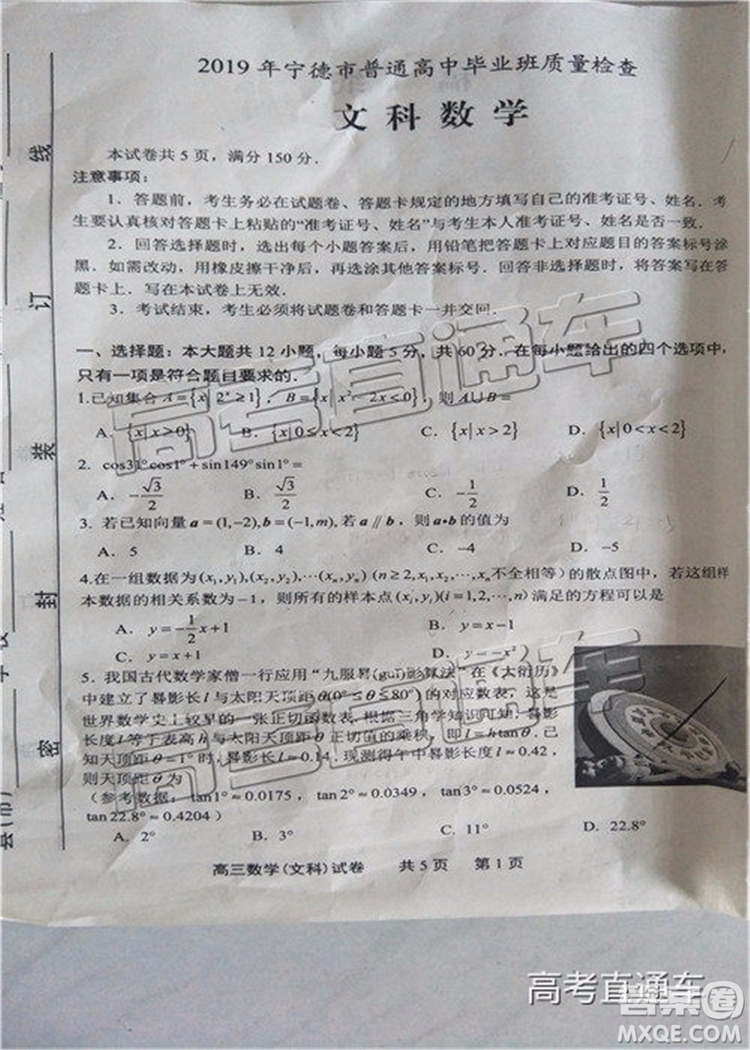 2019年宁德市普通高中毕业班质量检查
文科数学
本试卷共5页，满分150分．
注意事项：
1．答题前，考生务必在试题卷、答题卡规定的地方填写自己的准考证号、姓名．考
生要认真核对答题卡上粘贴的“准考证号、姓名”与考生本人准考证号、姓名是否一致．
2．回答选择题时，选出每个小题答案后，用铅笔把答题卡上对应题目的答案标号涂
黑．如需改动，用橡皮擦干净后，再选涂其他答案标号．回答非选择题时，将答案写在答
题卡上．写在本试卷上无效．
3．考试结束，考生必须将试题卷和答题卡一并交回．
一、选择题：本大题共12小题，每小题5分，共60分．在每小题给出的四个选项中，
只有一项是符合题目要求的．
1.已知集合A={x|2ˣ≥1}，B={x|x²−2x≤0}，则A∪B=
A．{x|x≥0} B．{x|0≤x≤2} C．{x|x>2} D．{x|0<x<2}
2．cos31°cos1°+sin149°sin1°=
A．−√3/2 B．√3/2 C．−1/2 D．1/2
3．若已知向量a=(1,−2),b=(−1,m),若a∥b，则a•b的值为
A．5 B．4 C．−4 D．−5
4.在一组数据为(x₁,y₁),(x₂,y₂),⋯(xₙ,yₙ)(n≥2,x₁,x₂,⋯,xₙ不全相等)的散点图中，若这组样
本数据的相关系数为−1，则所有的样本点(xᵢ,yᵢ)(i=1,2,⋯,n)满足的方程可以是
A．y=−1/2x+1 B．y=x−1
C．y=x+1 D．y=−x²
5．我国古代数学家僧一行应用“九服晷(guǐ)影算法”在《大衍历》
中建立了晷影长l与太阳天顶距θ(0°≤θ≤80°)的对应数表，这是
世界数学史上较早的一张正切函数表．根据三角学知识可知，晷影
长度l等于表高h与太阳天顶距θ正切值的乘积，即l=htanθ．已
知天顶距θ=1°时，晷影长l≈0.14．现测得午中晷影长度l≈0.42，
则天顶距θ为
(参考数据：tan1°≈0.0175，tan2°≈0.0349，tan3°≈0.0524，
tan22.8°≈0.4204)
A．2° B．3° C．11° D．22.8°
高三数学(文科)试卷 共5页 第1页
线
订
装
封
密
县(市)
学校
高考直通车
高考直通车
高考直通车
答案圈
MXQE.COM